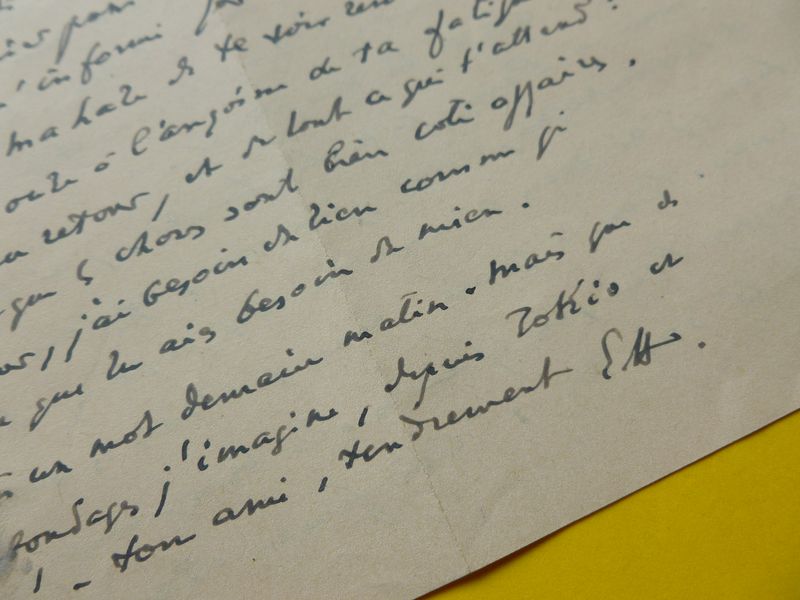 m'informé
ma hate de te voir
oute à l'angoisse de ta fatigue
retour, et de tout ce qui t'attend !
que les choses sont bien coté affaires .
, j'ai besoin du tien comme j'
que tu aies besoin du mien .
un mot demain matin . mais que de
sondages j'imagine , depuis Tokio et
! - ton ami , tendrement